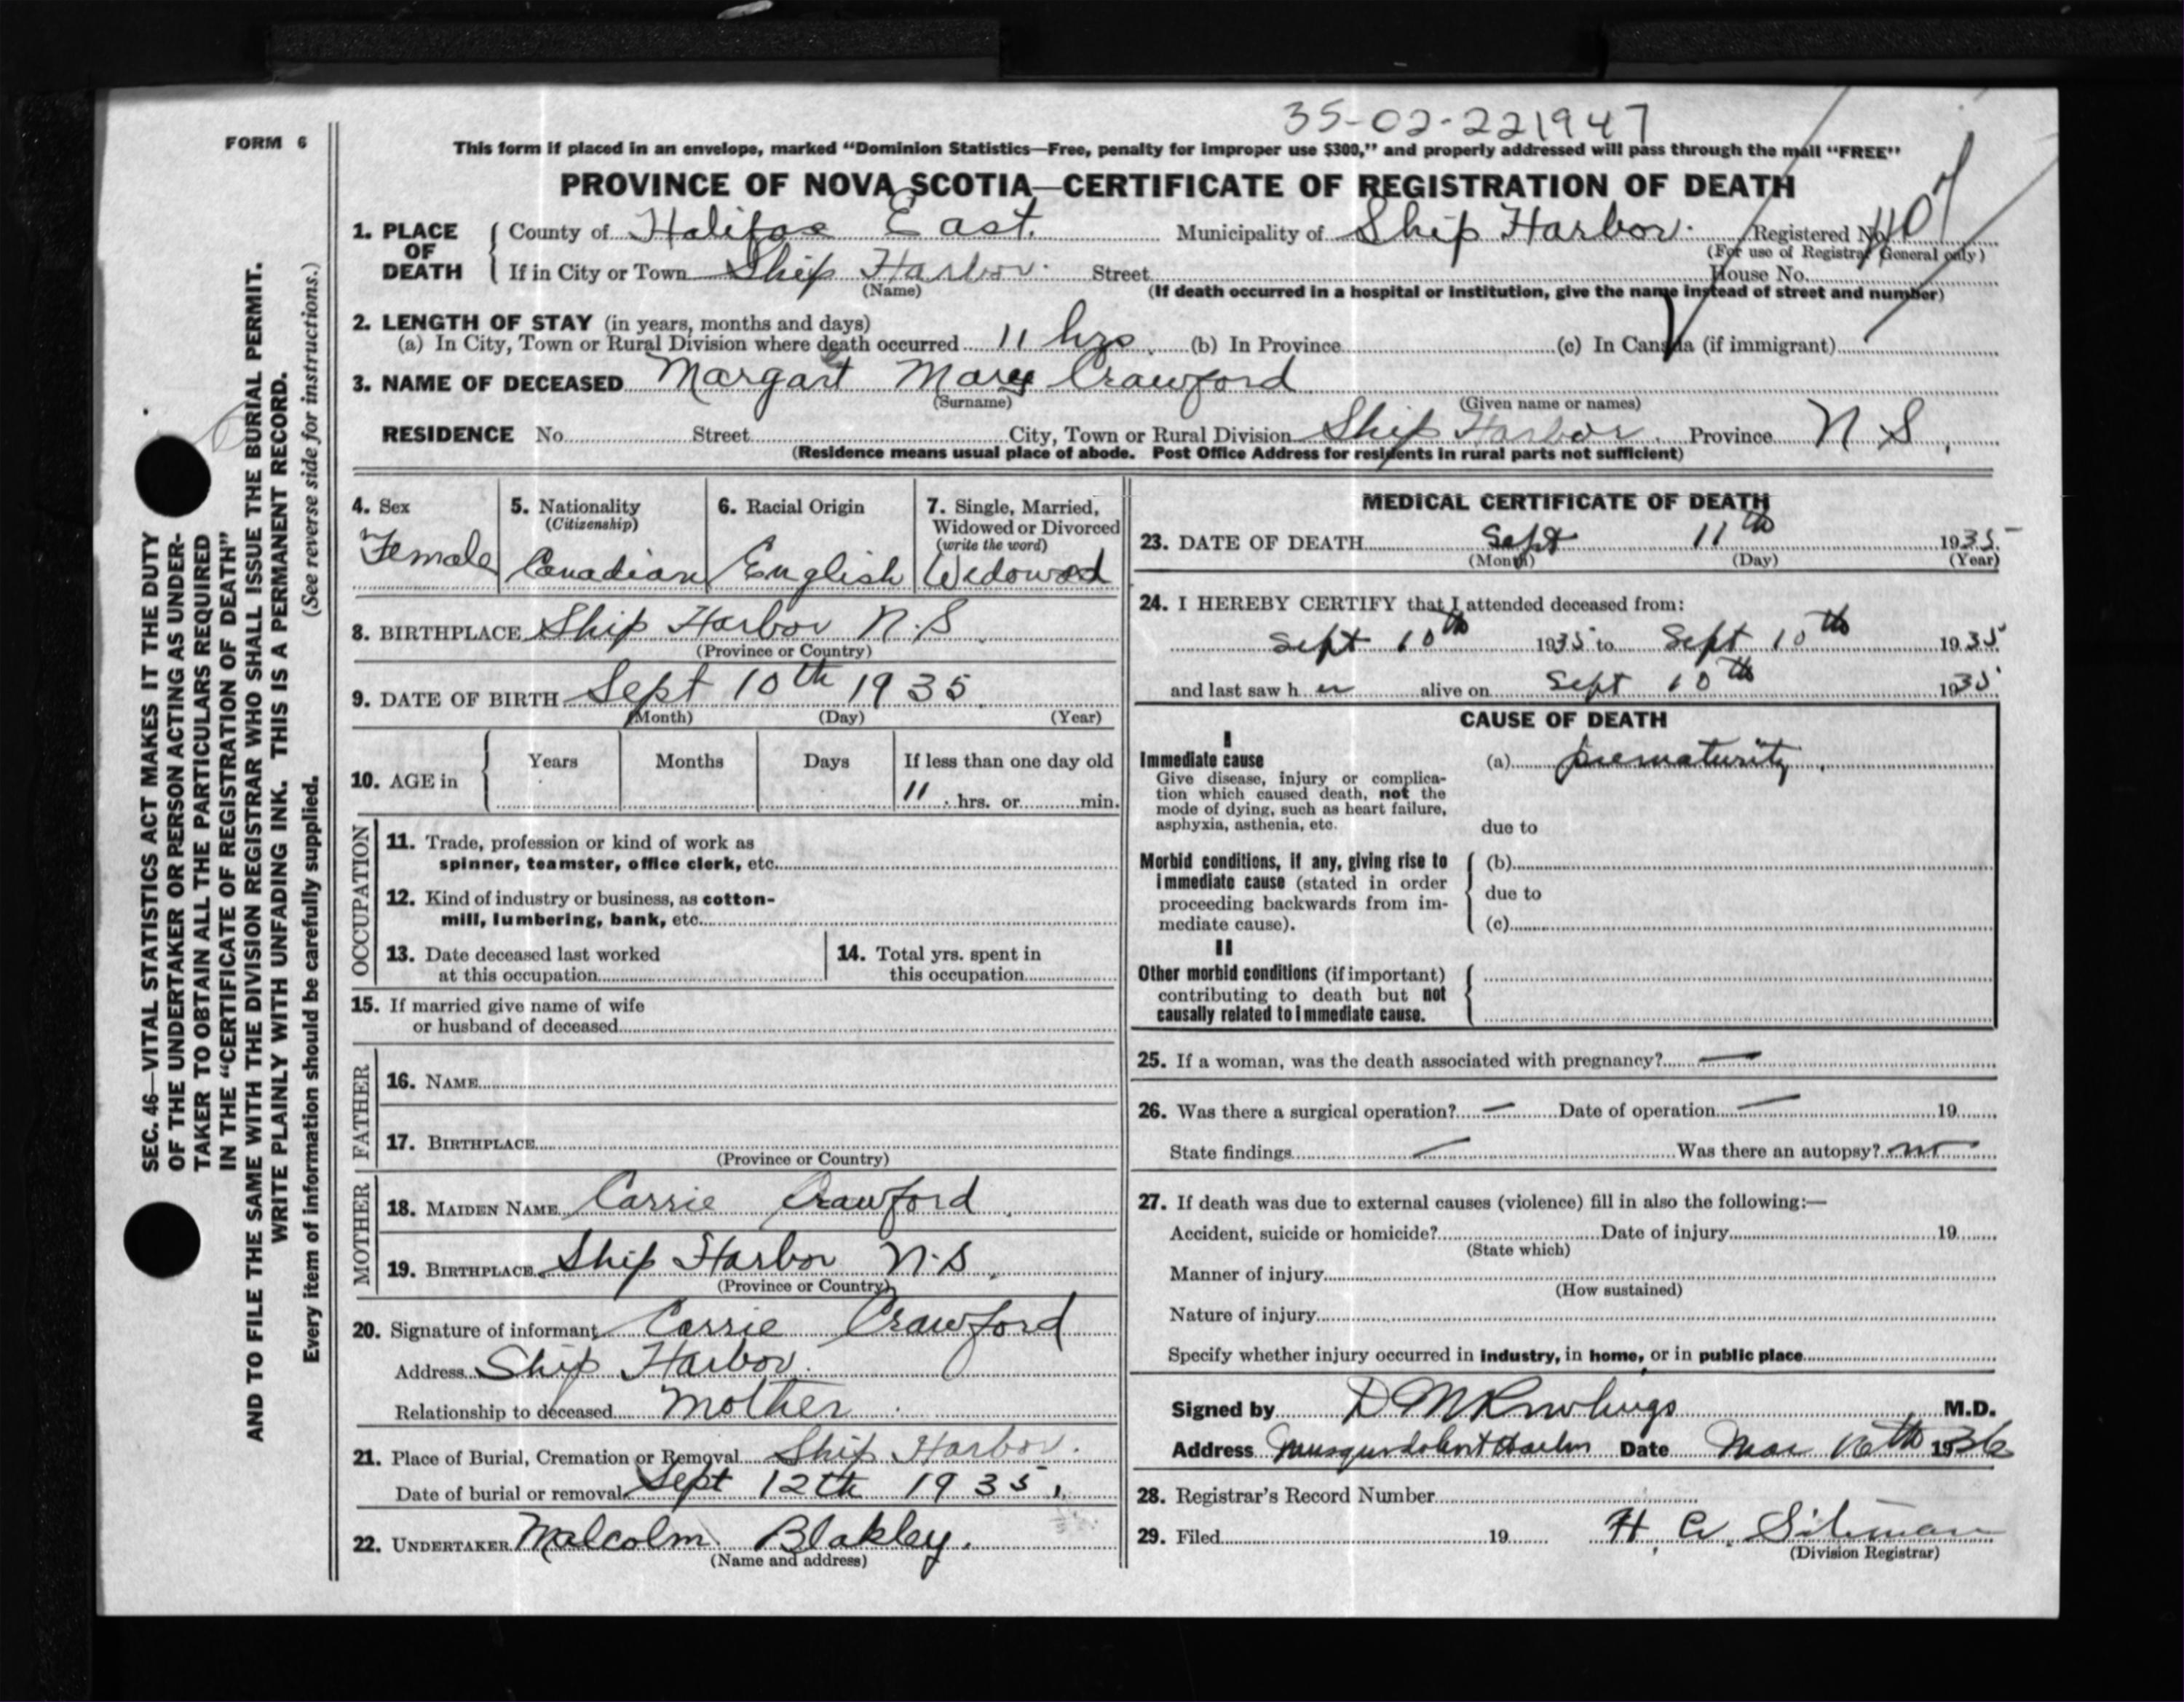 35-02-221947
FORM 6
This form if placed in an envelope, marked "Dominion Statistics—Free, penalty for improper use $300," and properly addressed will pass through the mail "FREE"
PROVINCE OF NOVA SCOTIA—CERTIFICATE OF REGISTRATION OF DEATH
1. PLACE OF DEATH County of Halifax East. Municipality of Ship Harbor. Registered No.
(For use of Registrar General only)
If in City or Town Ship Harbor. Street House No.
(Name) (If death occurred in a hospital or institution, give the name instead of street and number)
2. LENGTH OF STAY (in years, months and days)
(a) In City, Town or Rural Division where death occurred 11 hrs. (b) In Province (c) In Canada (if immigrant)
3. NAME OF DECEASED Margart Mary Crawford
(Surname) (Given name or names)
RESIDENCE No. Street City, Town or Rural Division Ship Harbor. Province N S.
(Residence means usual place of abode. Post Office Address for residents in rural parts not sufficient)
4. Sex Female
5. Nationality (Citizenship) Canadian
6. Racial Origin English
7. Single, Married, Widowed or Divorced (write the word) Widowed
8. BIRTHPLACE Ship Harbor N.S.
(Province or Country)
9. DATE OF BIRTH Sept 10th 1935.
(Month) (Day) (Year)
10. AGE in Years Months Days If less than one day old
11 hrs. or min.
OCCUPATION
11. Trade, profession or kind of work as
spinner, teamster, office clerk, etc.
12. Kind of industry or business, as cotton-
mill, lumbering, bank, etc.
13. Date deceased last worked
at this occupation
14. Total yrs. spent in
this occupation
15. If married give name of wife
or husband of deceased
FATHER
16. NAME
17. BIRTHPLACE
(Province or Country)
MOTHER
18. MAIDEN NAME Carrie Crawford.
19. BIRTHPLACE Ship Harbor N.S.
(Province or Country)
20. Signature of informant Carrie Crawford
Address Ship Harbor.
Relationship to deceased Mother.
21. Place of Burial, Cremation or Removal Ship Harbor.
Date of burial or removal Sept 12th 1935.
22. UNDERTAKER Malcolm Blakley.
(Name and address)
MEDICAL CERTIFICATE OF DEATH
23. DATE OF DEATH Sept 11th 1935
(Month) (Day) (Year)
24. I HEREBY CERTIFY that I attended deceased from:
Sept 10th 1935 to Sept 10th 1935
and last saw her alive on Sept 10th 1935
CAUSE OF DEATH
I
Immediate cause
Give disease, injury or complica-
tion which caused death, not the
mode of dying, such as heart failure,
asphyxia, asthenia, etc.
(a) prematurity.
due to
Morbid conditions, if any, giving rise to
immediate cause (stated in order
proceeding backwards from im-
mediate cause).
(b)
due to
(c)
II
Other morbid conditions (if important)
contributing to death but not
causally related to immediate cause.
25. If a woman, was the death associated with pregnancy? —
26. Was there a surgical operation? — Date of operation — 19
State findings — Was there an autopsy? no
27. If death was due to external causes (violence) fill in also the following:—
Accident, suicide or homicide? Date of injury 19
(State which)
Manner of injury
(How sustained)
Nature of injury
Specify whether injury occurred in industry, in home, or in public place
Signed by D M Rowlings M.D.
Address Musquodoboit Harbor Date Mar 16th 1936
28. Registrar's Record Number
29. Filed 19 H. A.
(Division Registrar)
SEC. 46—VITAL STATISTICS ACT MAKES IT THE DUTY
OF THE UNDERTAKER OR PERSON ACTING AS UNDER-
TAKER TO OBTAIN ALL THE PARTICULARS REQUIRED
IN THE "CERTIFICATE OF REGISTRATION OF DEATH"
AND TO FILE THE SAME WITH THE DIVISION REGISTRAR WHO SHALL ISSUE THE BURIAL PERMIT.
WRITE PLAINLY WITH UNFADING INK. THIS IS A PERMANENT RECORD.
Every item of information should be carefully supplied. (See reverse side for instructions.)